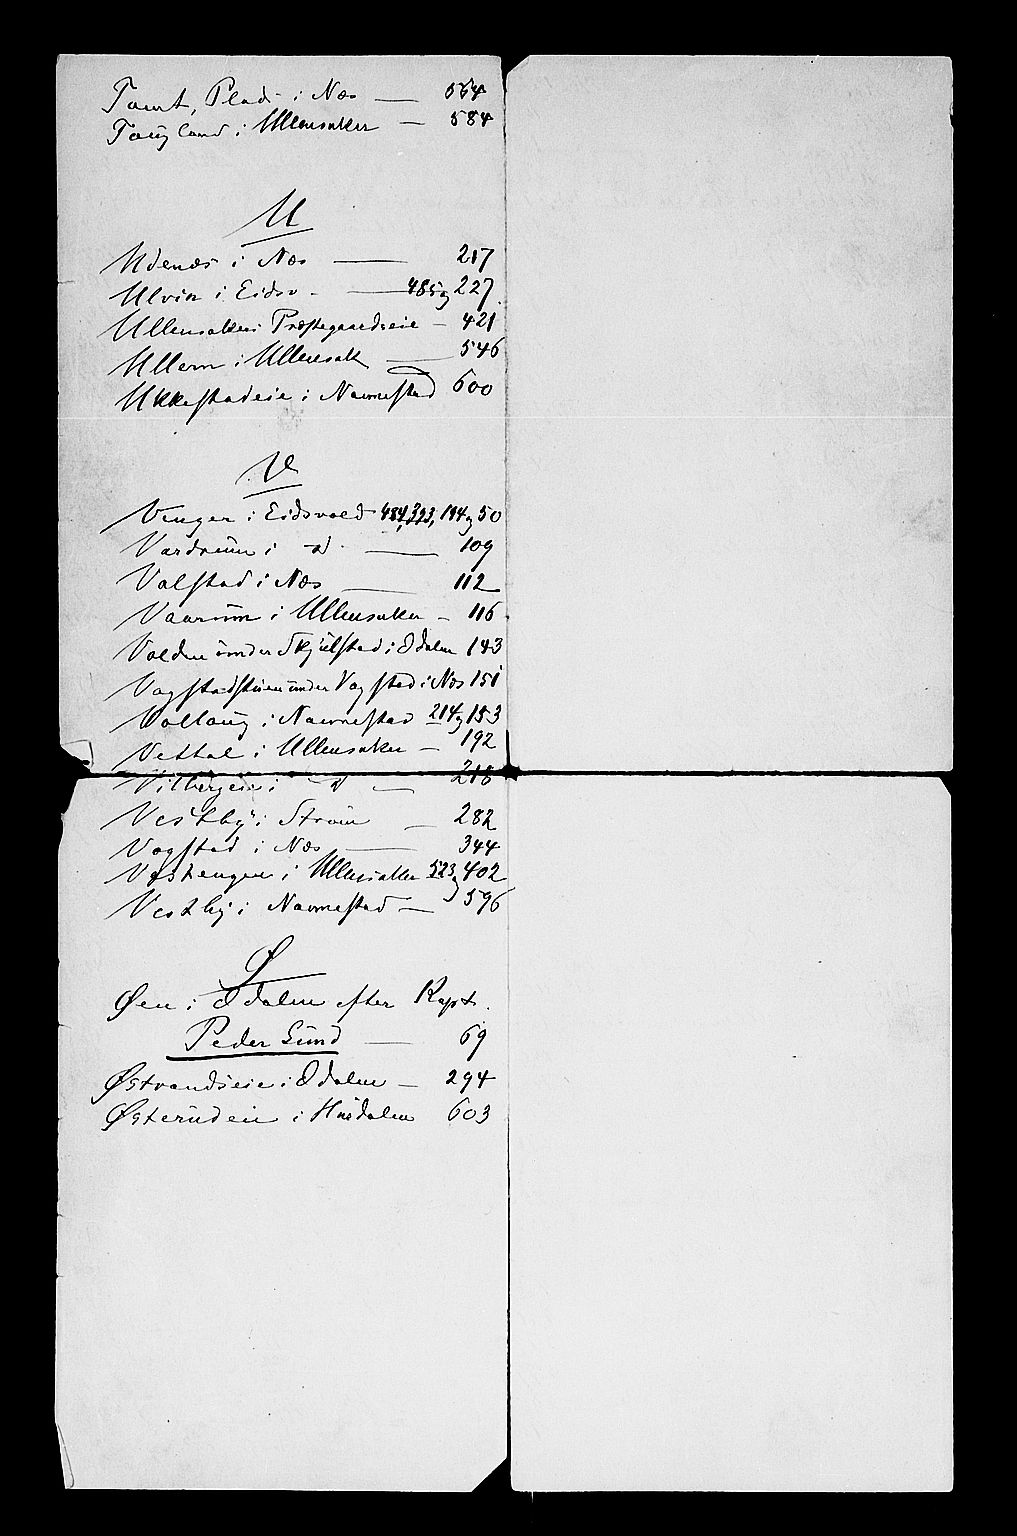 Tomt, Plads i Næs — 564
Taugland i Ullensaker — 584
U
Udenæs i Næs — 217
Ulvin i Eidsv. — 485 og 227
Ullensakers Præstegaardseie — 421
Ullern i Ullensak — 546
Ukkestadeie i Nannestad 600
V
Venger i Eidsvold 484, 323, 194 og 50
Vardrum i d — 109
Valstad i Næs — 112
Vaarum i Ullensaker — 116
Volden under Skjülstad i Odalen 143
Vagstadstuen under Vagstad i Næs 151
Vollaug i Nannestad 214 og 153
Vettal i Ullensaker — 192
Vilbergeie i d — 218
Vestby i Strøm — 282
Vogstad i Næs — 344
Vestengen i Ullensaker 523 og 402
Vestby i Nannestad — 596
Ø
Øen i Odalen efter Kapt.
Peder Lund — 69
Østvandseie i Odalen — 294
Østerudeie i Hurdalen 603